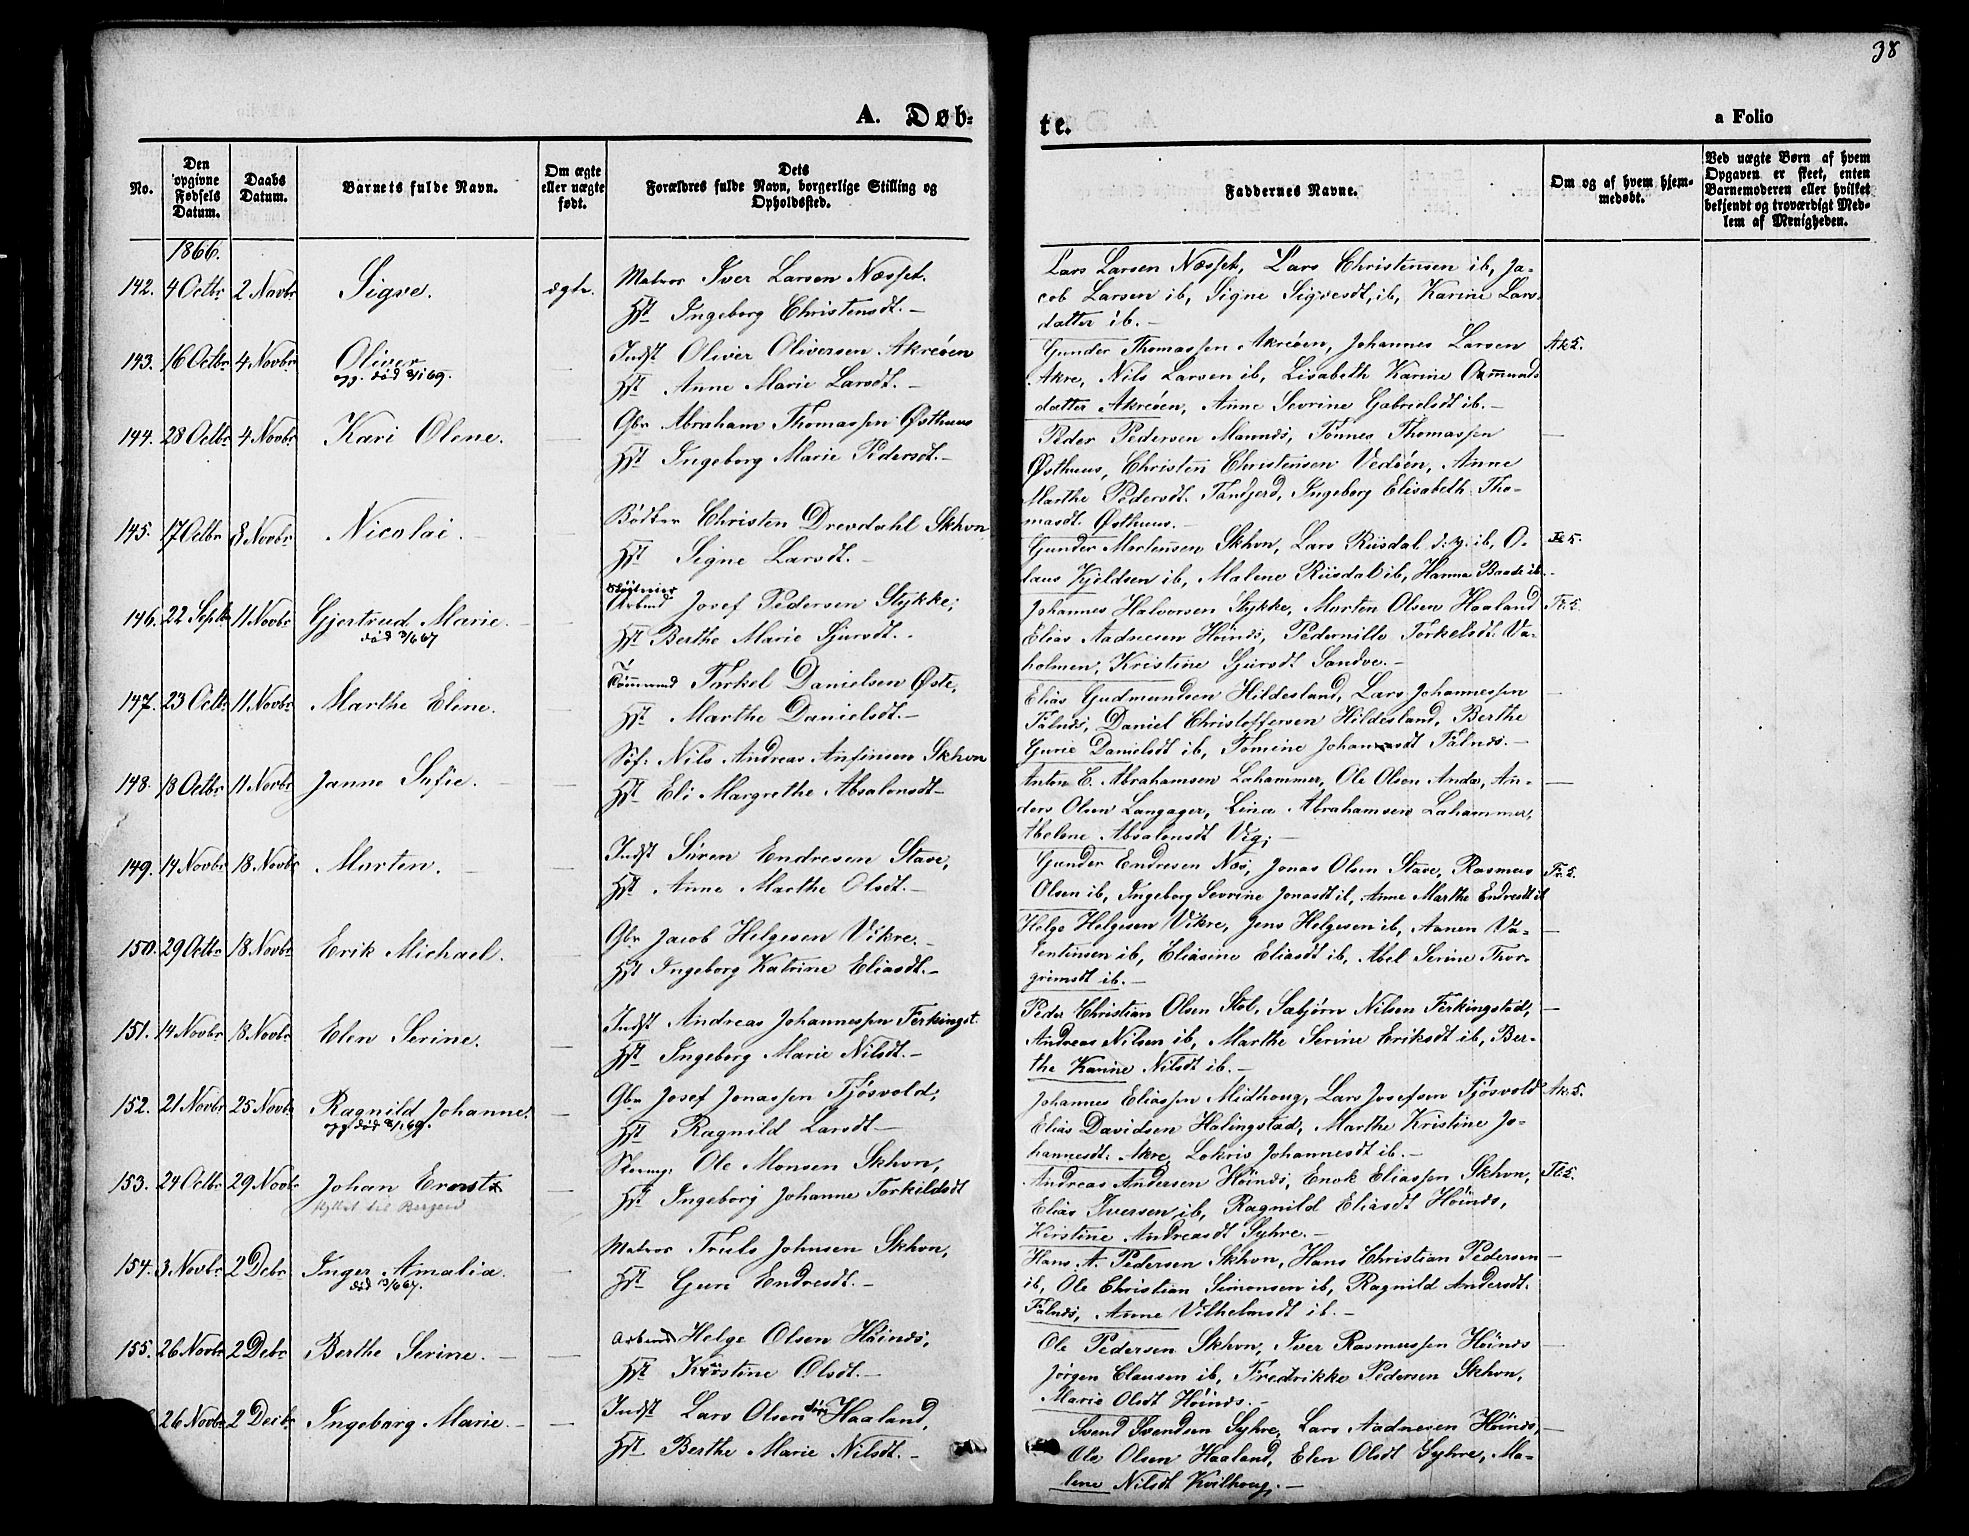 38
A. Døb-
te.
a Folio
No.
Den opgivne Fødsels Datum.
Daabs Datum.
Barnets fulde Navn.
Om ægte eller uægte født.
Dets Forældres fulde Navn, borgerlige Stilling og Opholdssted.
Faddernes Navne.
Om og af hvem hjem- medøbt.
Ved uægte Børn af hvem Opgaven er skeet, enten Barnemoderen eller hvilket bekjendt og troværdigt Med- lem af Menigheden.
1866.
142. 4 Octbr 2 Novbr Sigve. ægte. Matros Iver Larsen Næsset.
Hst Ingeborg Christensdt. –
Lars Larsen Næsset, Lars Christensen ib, Ja-
cob Larsen ib, Signe Sigvesdt, ib, Karine Lars
datter ib. –
143. 16 Octbr 4 Novbr Oliver — Indst Oliver Oliversen Akreøen
opg. død 3/1 69.
Hst Anne Marie Larsdt. –
Gunder Thomassen Akreøen, Johannes Larsen Ak 5.
Akre, Nils Larsen ib, Lisabeth Karine Osmunds
datter Akreøen, Anne Sevrine Gabrielsdt ib. –
144. 28 Octbr 4 Novbr Kari Olene. — Gbr Abraham Thomassen Østhuus
Hst Ingeborg Marie Pedersdt. –
Peder Pedersen Mannæs, Tønnes Thomassen —
Østhuus, Christen Christensen Vedøen, Anne
Marthe Pedersdt. Tandjerd, Ingeborg Elisabeth Tho-
masdt. Østhuus. –
145. 17 Octbr 8 Novbr Nicolai. — Bødker Christen Drevdahl Skhvn
Hst Signe Larsdt. –
Gunder Mortensen Skhvn, Lars Riisdal d. y. ib, O-
laus Kjeldsen ib, Malene Riisdal ib, Hanna Baade ib.
146. 22 Septbr 11 Novbr Gjertrud Marie. — Arbmd Josef Pedersen Stykke;
død 3/6 67
Hst Berthe Marie Sjursdt. –
Johannes Halvorsen Stykke, Morten Olsen Haaland
Elias Aadnesen Høinæs, Pedernille Torkelsdt. Va-
holmen, Kristine Sjursdt Sandve. –
147. 23 Octbr 11 Novbr Marthe Eline. — Tømmrmd Torkel Danielsen Øste,
Hst Marthe Danielsdt. –
Elias Gudmundsen Hildesland, Lars Johannessen —
Falnæs, Daniel Christoffersen Hildesland, Berthe
Gurie Danielsdt ib, Tomine Johannesdt Falnæs. –
148. 18 Octbr 11 Novbr Janne Sofie. — Søf: Nils Andreas Anfinsen Skhvn
Hst Eli Margrethe Absalonsdt –
Anton E. Abrahamsen Lahammer, Ole Olsen Anda, An- —
ders Olsen Langager, Lina Abrahamsen Lahammer,
Abelone Absalonsdt Vig; –
149. 14 Novbr 18 Novbr Morten. — Indst Sören Endresen Stave,
Hst Anne Marthe Olsdt. –
Gunder Endresen Næs, Jonas Olsen Stave, Rasmus
Olsen ib, Ingeborg Sevrine Jonasdt ib, Anne Marthe Endresdt ib
150. 29 Octbr 18 Novbr Erik Michael. — Gbr Jacob Helgesen Vikre. –
Hst Ingeborg Katrine Eliasdt. –
Helge Helgesen Vikre, Jens Helgesen ib, Aanen Va- —
lentinsen ib, Eliasine Eliasdt ib, Abel Serine Thor-
grimsdt ib. –
151. 14 Novbr 18 Novbr Elen Serine. — Indst Andreas Johannessen Ferkingst.
Hst Ingeborg Marie Nilsdt. –
Peder Christian Olsen Stol, Sæbjørn Nilsen Ferkingstad, —
Andreas Nilsen ib, Marthe Serine Eriksdt ib, Ber-
the Karine Nilsdt ib. –
152. 21 Novbr 25 Novbr Ragnild Johanne. — Gbr Josef Jonassen Tjøsvold,
opg. død 3/1 69.
Hst Ragnild Larsdt –
Johannes Eliassen Midhoug, Lars Josefsen Tjøsvold Ak 5.
Elias Davidsen Halingstad, Marthe Kristine Jo-
hannesdt. Akre, Lokris Johannesdt ib. –
153. 24 Octbr 29 Novbr Johan Ernst — Ole Monsen Skhvn,
flyttet til Bergen
Hst Ingeborg Johanne Torkildsdt
Andreas Andersen Høinæs, Enok Eliassen Skhvn,
Elias Iversen ib, Ragnild Eliasdt Høinæs,
Kirstine Andreasdt Syhre. –
154. 3 Novbr 2 Debr Inger Amalia. — Matros Truls Johnsen Skhvn,
død 13/6 67.
Hst Guri Endresdt. –
Hans A. Pedersen Skhvn, Hans Christian Pedersen —
ib, Ole Christian Simonsen ib, Ragnild Andersdt.
Falnæs, Anne Vilhelmsdt ib. –
155. 26 Novbr 2 Debr Berthe Serine. — Arbmd Helge Olsen Høinæs,
Hst Kirstine Olsdt. –
Ole Pedersen Skhvn, Iver Rasmussen Høinæs —
Jørgen Clausen ib, Fredrikke Pedersen Skhvn,
Marie Olsdt Høinæs. –
26 Novbr 2 Decbr Ingeborg Marie. — Indst Lars Olsen Haaland,
Hst Berthe Marie Nilsdt. –
Svend Svendsen Syhre, Lars Aadnesen Høinæs, —
Ole Olsen Haaland, Elen Olsdt Syhre, Ma-
lene Nilsdt Kvilhoug. –